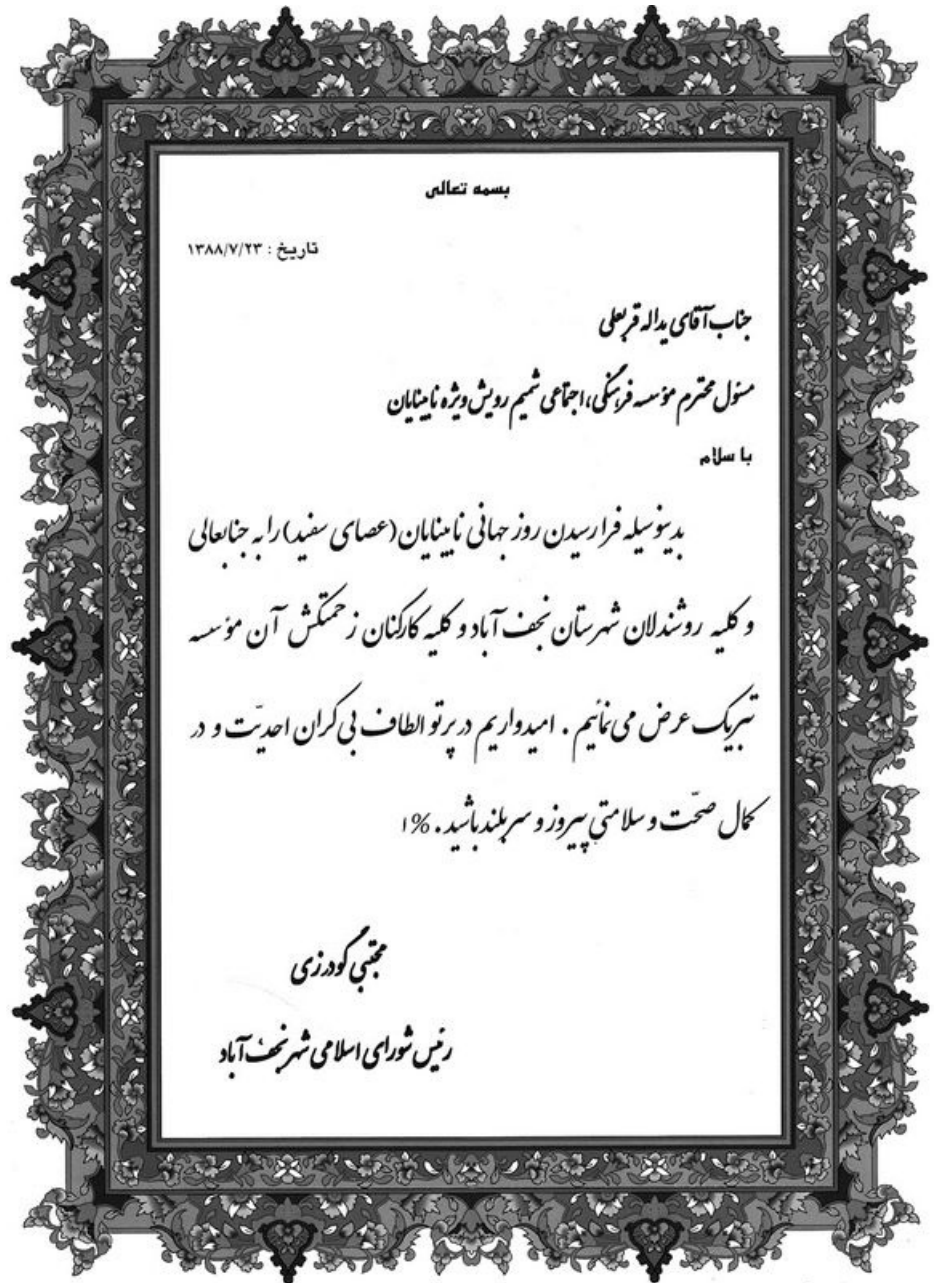 بسمه تعالی
تاریخ : ۱۳۸۸/۷/۲۳
جناب آقای یداله قربعلی
مسئول محترم مؤسسه فرهنگی، اجتماعی شمیم رویش ویژه نابینایان
با سلام
بدینوسیله فرا رسیدن روز جهانی نابینایان (عصای سفید) را به جنابعالی
و کلیه روشندلان شهرستان نجف آباد و کلیه کارکنان زحمتکش آن مؤسسه
تبریک عرض می نمائیم . امیدواریم در پرتو الطاف بی کران احدیّت و در
کمال صحّت و سلامتی پیروز و سربلند باشید . %۱
مجتبی گودرزی
رئیس شورای اسلامی شهر نجف آباد